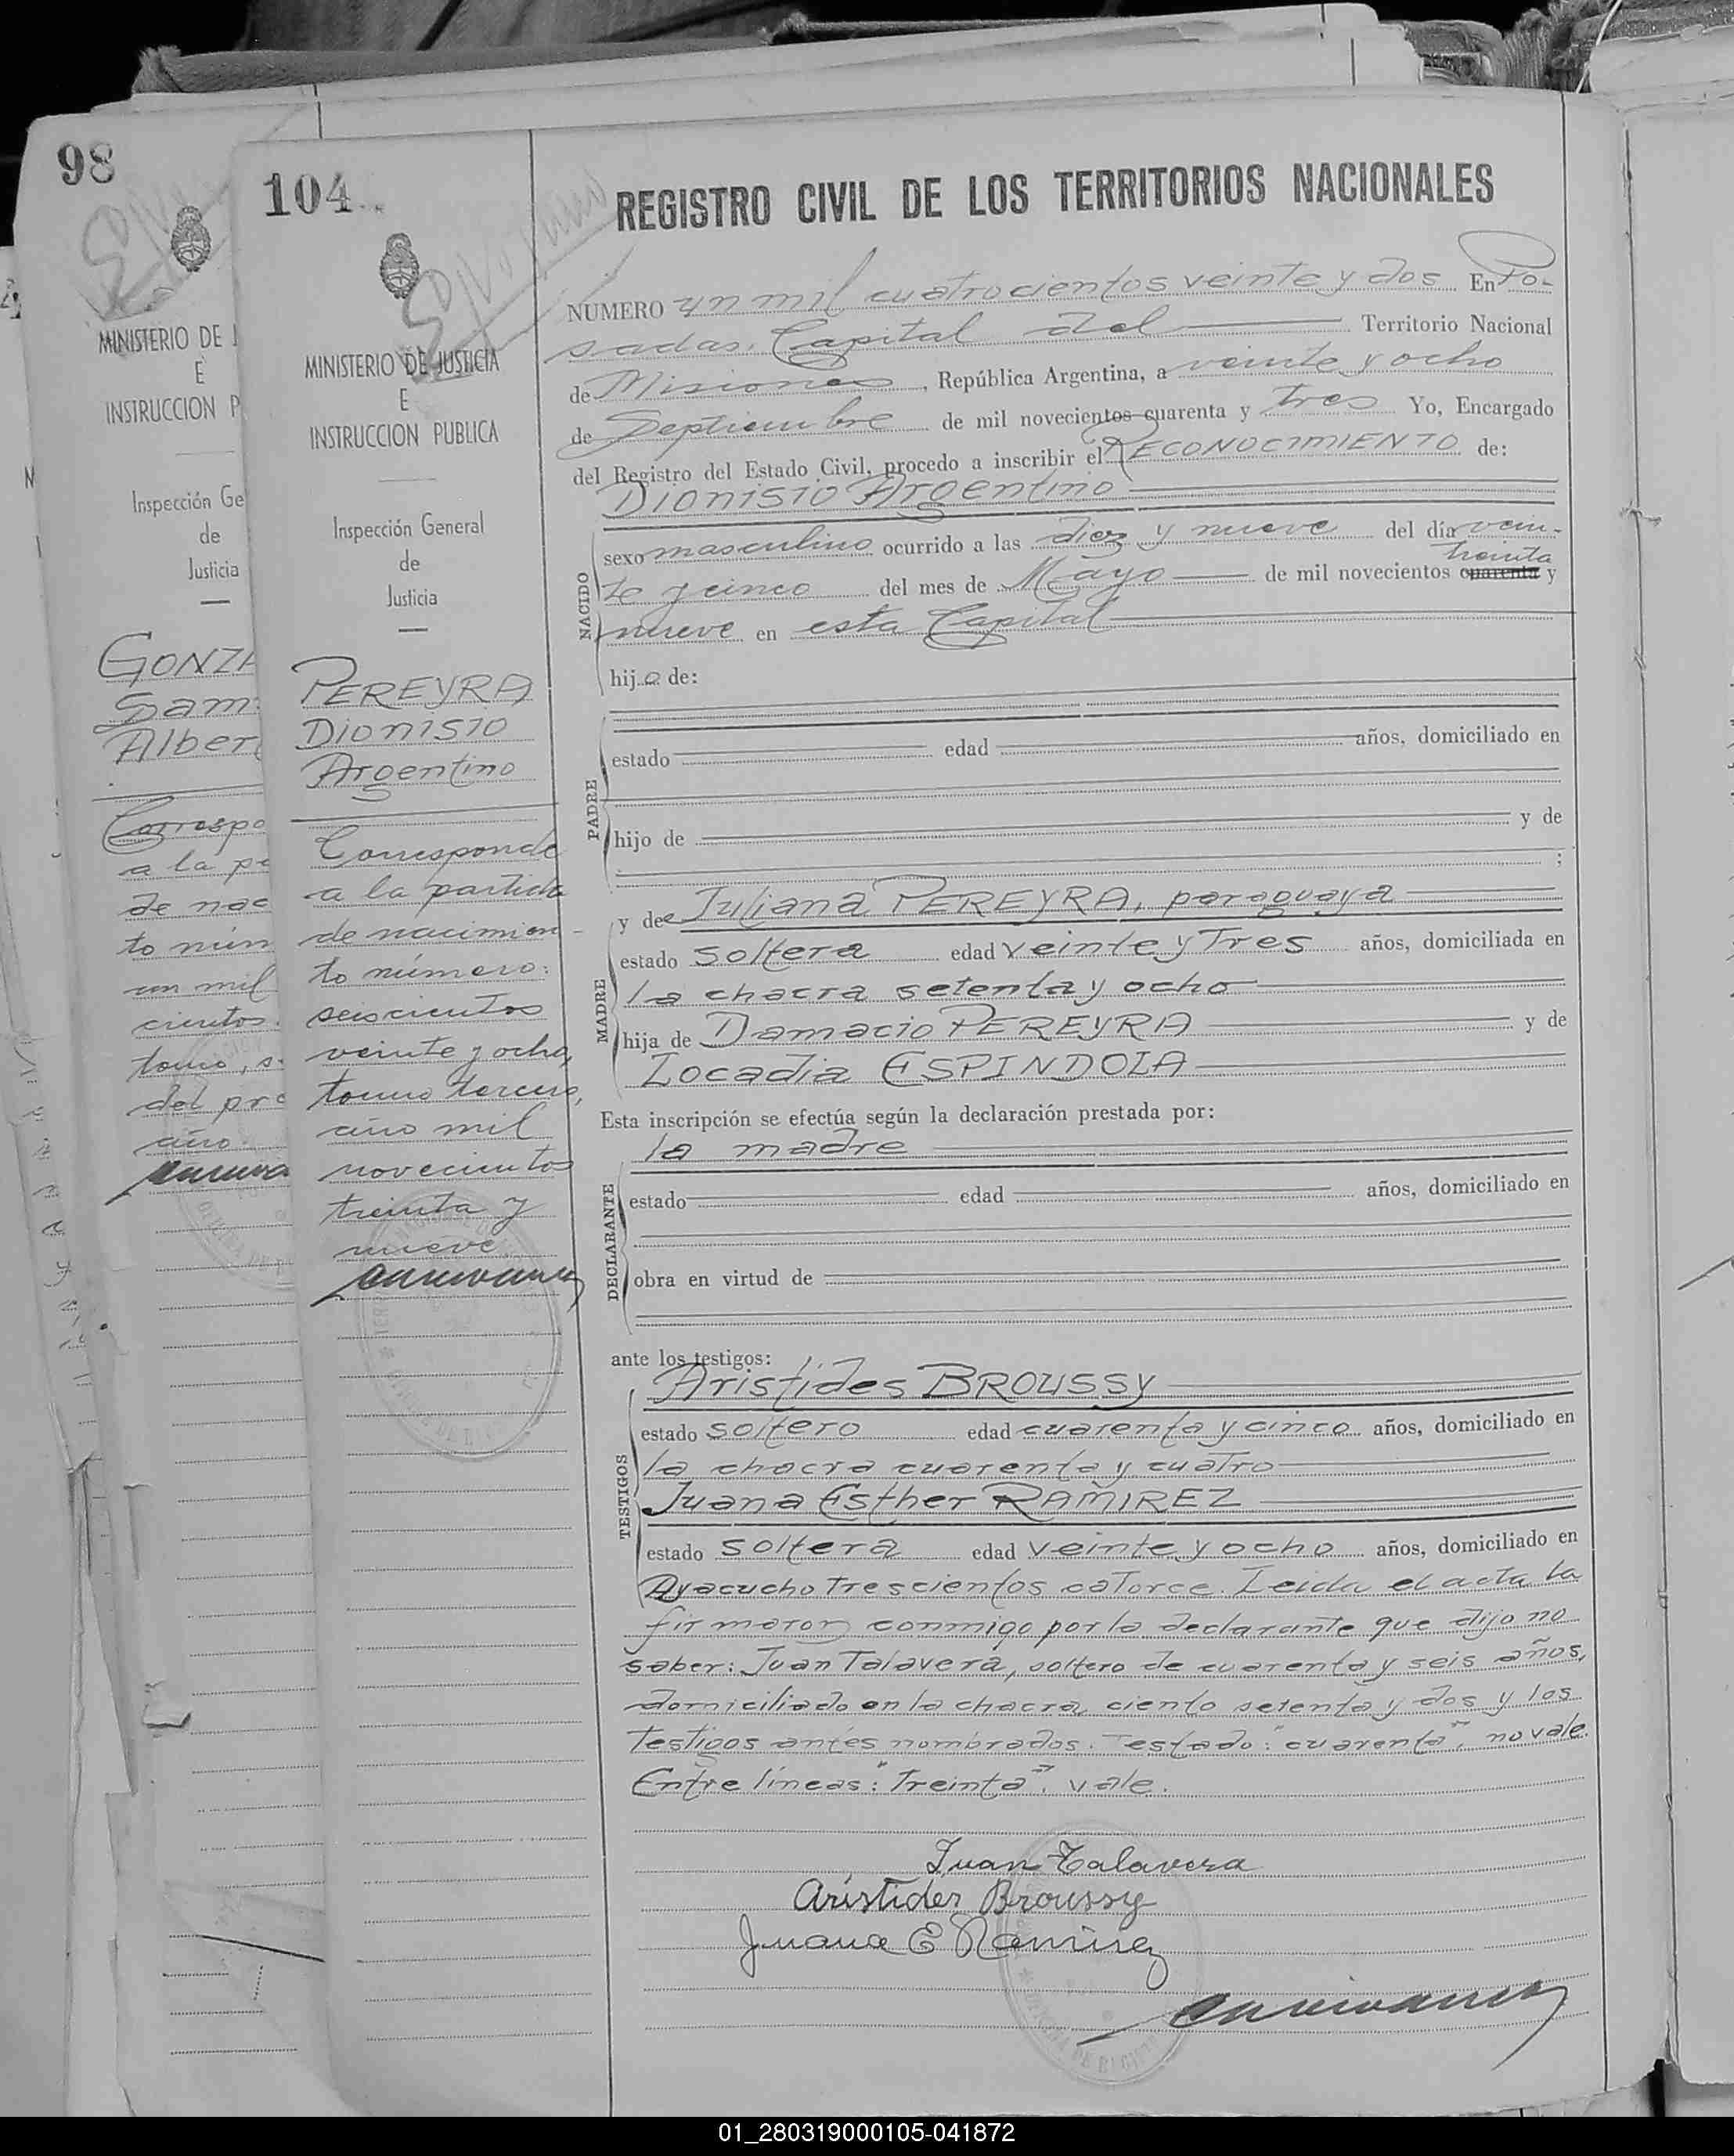 98
MINISTERIO DE J
E
INSTRUCCION P
Inspección Ge
de
Justicia
GONZA
Sam
Alber
Correspo
a la pa
de nac
to núm
un mil
cientos
tomo, s
del pre
año
104
MINISTERIO DE JUSTICIA
E
INSTRUCCION PUBLICA
Inspección General
de
Justicia
PEREYRA
Dionisio
Argentino
Corresponde
a la partida
de nacimien-
to número:
seiscientos
veinte y ocho,
tomo tercero,
año mil
novecientos
treinta y
nueve
REGISTRO CIVIL DE LOS TERRITORIOS NACIONALES
NUMERO un mil cuatrocientos veinte y dos En Po-
sadas, Capital del Territorio Nacional
de Misiones, República Argentina, a veinte y ocho
de Septiembre de mil novecientos cuarenta y tres Yo, Encargado
del Registro del Estado Civil, procedo a inscribir el RECONOCIMIENTO de:
Dionisio Argentino
NACIDO
sexo masculino ocurrido a las diez y nueve del día vein-
treinta
te y cinco del mes de Mayo de mil novecientos cuarenta y
nueve en esta Capital
hijo de:
PADRE
estado edad años, domiciliado en
hijo de y de
;
MADRE
y de Juliana PEREYRA, paraguaya
estado soltera edad veinte y Tres años, domiciliada en
la chacra setenta y ocho
hija de Damacio PEREYRA y de
Locadia ESPINDOLA
Esta inscripción se efectúa según la declaración prestada por:
la madre
DECLARANTE
estado edad años, domiciliado en
obra en virtud de
ante los testigos:
TESTIGOS
Aristides BROUSSY
estado soltero edad cuarenta y cinco años, domiciliado en
la chacra cuarenta y cuatro
Juana Esther RAMIREZ
estado soltera edad veinte y ocho años, domiciliado en
Ayacucho Trescientos catorce. Leida el acta la
firmaron conmigo por la declarante que dijo no
saber: Juan Talavera, soltero de cuarenta y seis años,
domiciliado en la chacra ciento setenta y dos y los
testigos antes nombrados. Testado: "cuarenta", no vale.
Entre líneas: "Treinta", vale.
Juan Talavera
Aristides Broussy
Juana E Ramirez
01_280319000105-041872